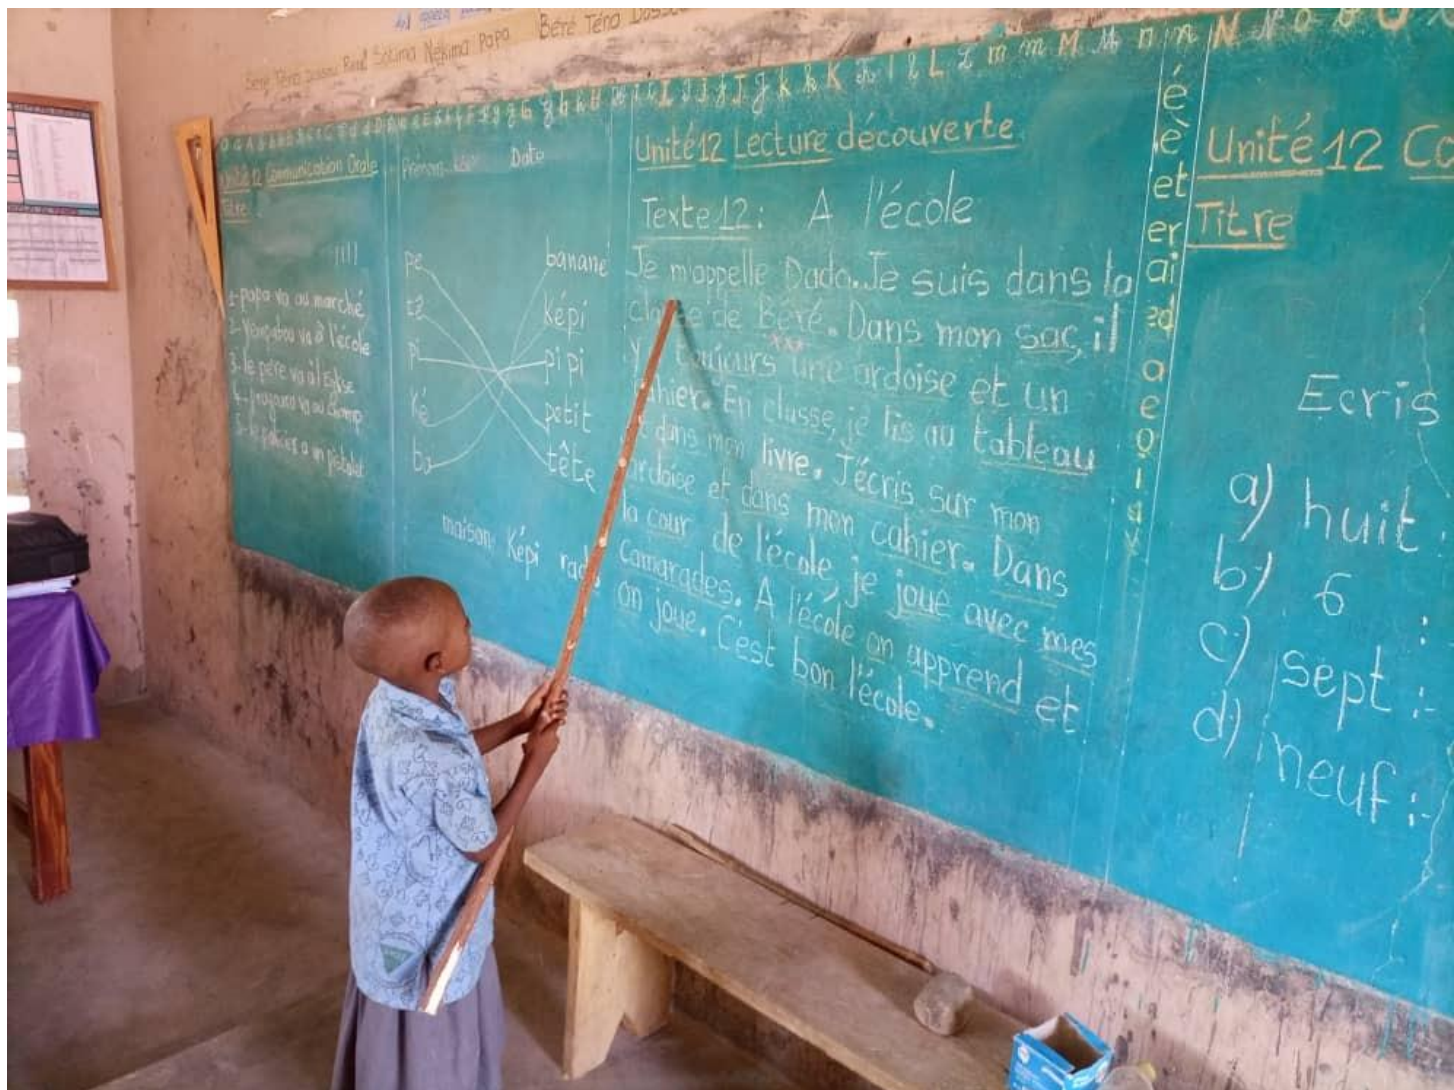 Béré Téna
Sotima Nékima Papa
Unité 12 Communication Orale
Titre
1- papa va au marché
2- Yempabou va à l'école
3- le père va à l'Eglise
5- le policier a un pistolet
Prénom
Date
pe
tê
pi
Ké
ba
banane
képi
pipi
petit
tête
maison Képi
Unité 12 Lecture découverte
Texte 12 : A l'école
Je m'appelle Dada. Je suis dans la
de Béré. Dans mon sac, il
y toujours une ardoise et un
cahier. En classe, je lis au tableau
dans mon livre. J'écris sur mon
ardoise et dans mon cahier. Dans
la cour de l'école, je joue avec mes
camarades. A l'école on apprend et
on joue. C'est bon l'école.
é
è
et
er
ai
ed
a
e
o
i
u
Unité 12 Co
Titre
Ecris
a) huit :
b) 6 :
c) sept :-
d) neuf :-